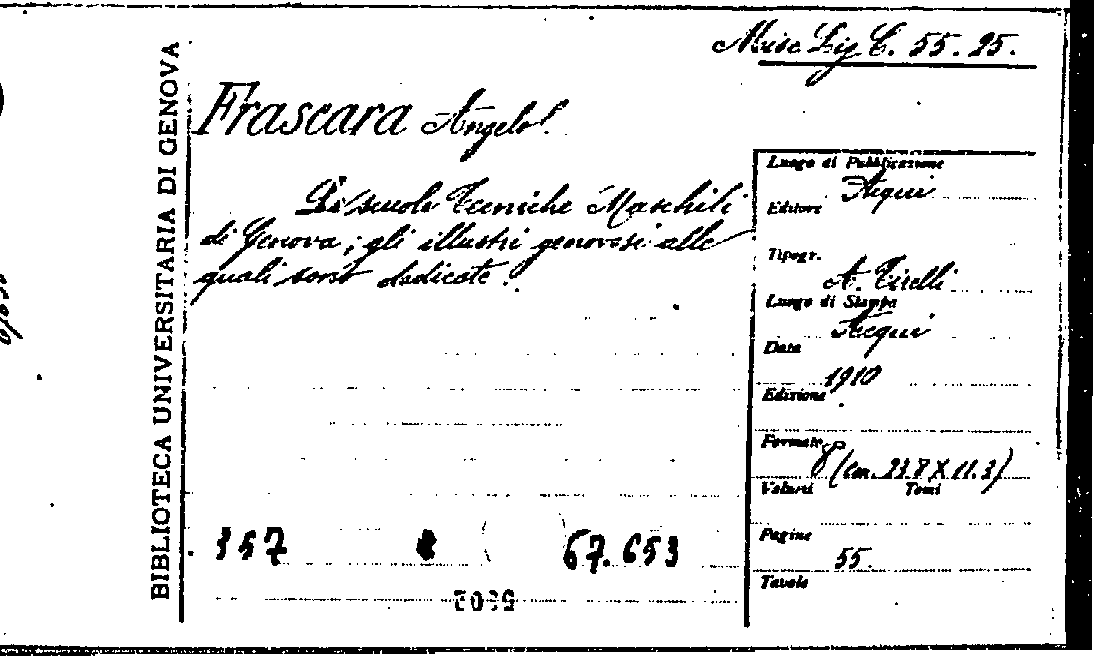 Misc Lig C. 55. 25.
BIBLIOTECA UNIVERSITARIA DI GENOVA
Frascara Angelo.
Le scuole Tecniche Maschili
di Genova; gli illustri genovesi alle
quali sono dedicate.
Luogo di Pubblicazione
Acqui
Editore
Tipogr.
A. Tirelli
Luogo di Stampa
Acqui
Data
1910
Edizione
Formato
8 (cm. 23.8 X 11.3)
Volumi Tomi
Pagine
55.
Tavole
357 67.653